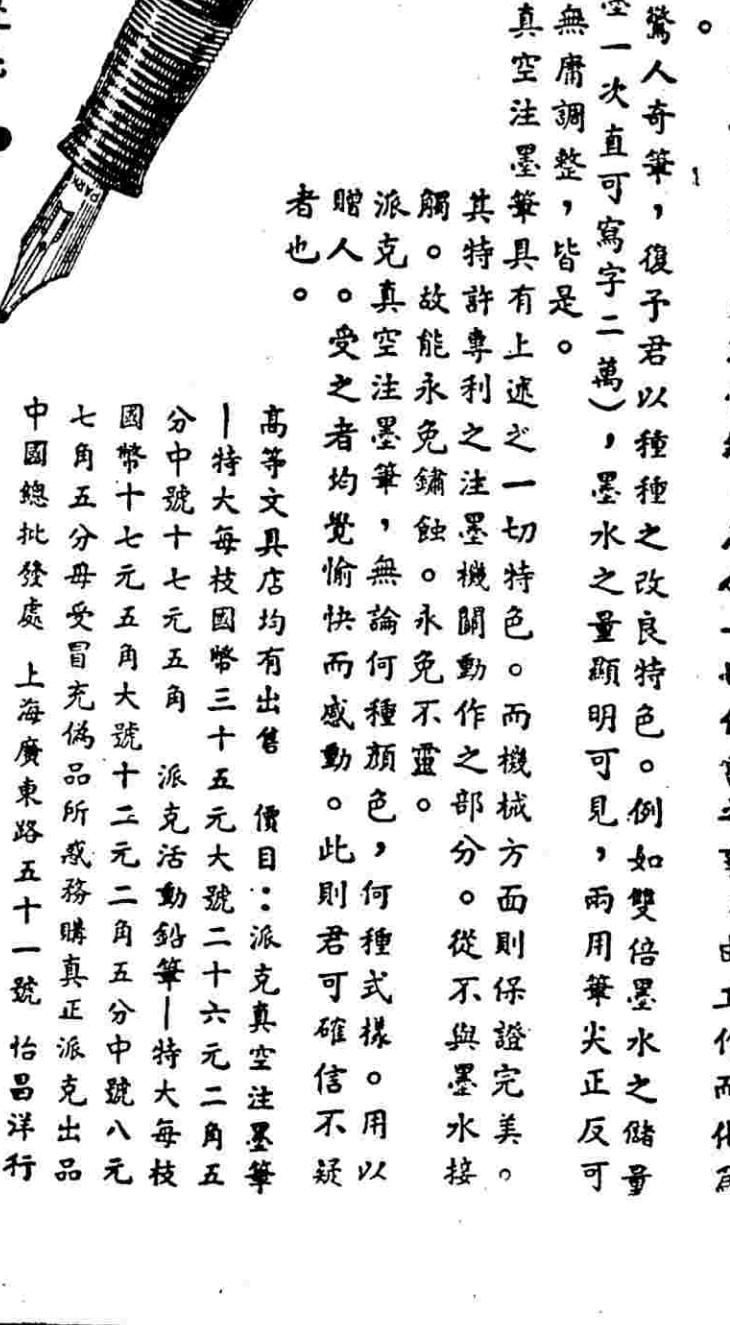 驚人奇筆，復予君以種種之改良特色。例如雙倍墨水之儲量
一次直可寫字二萬），墨水之量顯明可見，兩用筆尖正反可
無庸調整，皆是。
真空注墨筆具有上述之一切特色。而機械方面則保證完美。
其特許專利之注墨機關動作之部分。從不與墨水接
觸。故能永免鏽蝕。永免不靈。
派克真空注墨筆，無論何種顏色，何種式樣。用以
贈人。受之者均覺愉快而感動。此則君可確信不疑
者也。
高等文具店均有出售　價目：派克真空注墨筆
—特大每枝國幣三十五元大號二十六元二角五
分中號十七元五角　派克活動鉛筆—特大每枝
國幣十七元五角大號十二元二角五分中號八元
七角五分毋受冒充偽品所惑務購真正派克出品
中國總批發處　上海廣東路五十一號　怡昌洋行